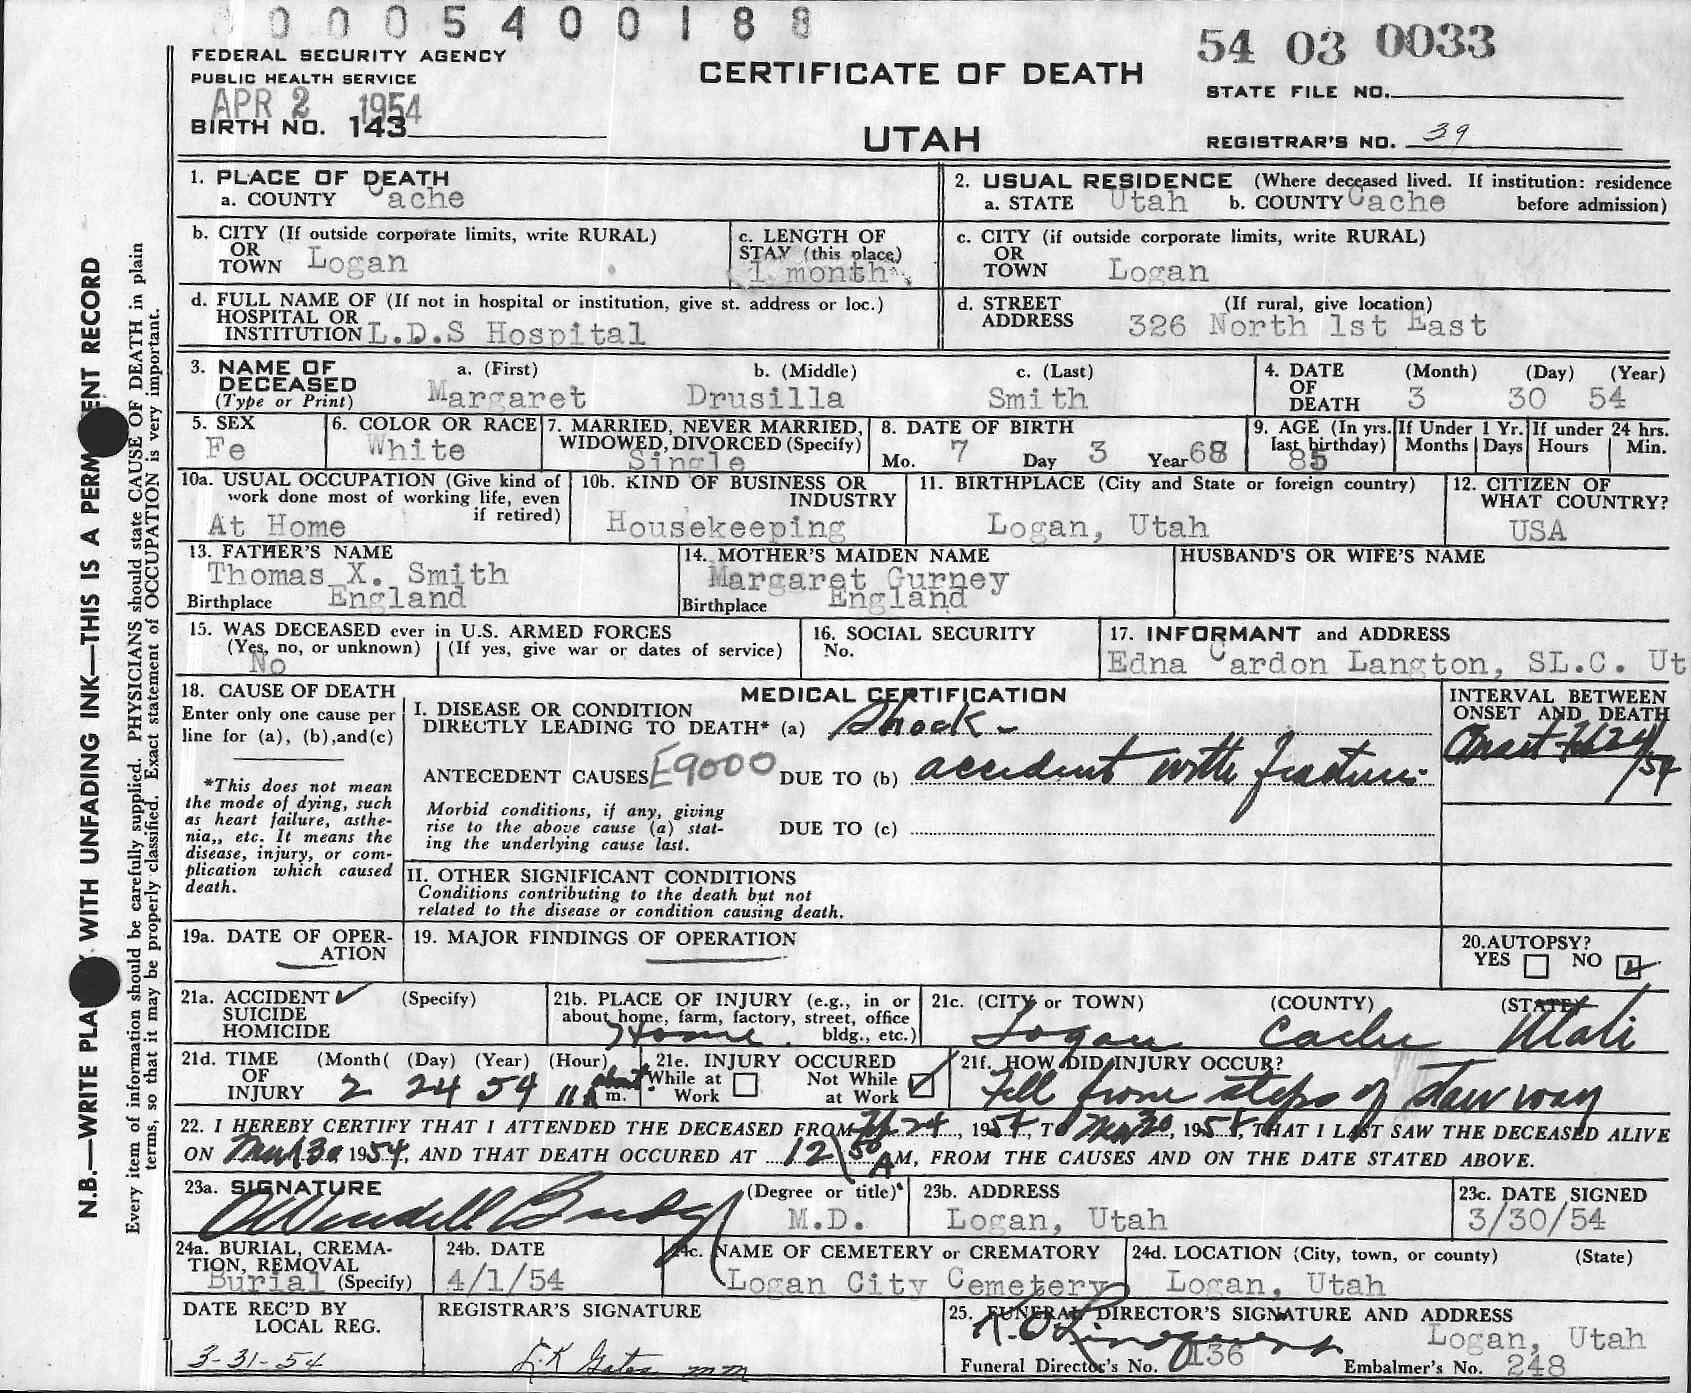 0 0 0 5 4 0 0 1 8 8
54 03 0033
FEDERAL SECURITY AGENCY
PUBLIC HEALTH SERVICE
APR 2 1954
BIRTH NO. 143
CERTIFICATE OF DEATH
UTAH
STATE FILE NO.
REGISTRAR'S NO. 39
N.B.—WRITE PLA WITH UNFADING INK—THIS IS A PERM ENT RECORD
Every item of information should be carefully supplied. PHYSICIANS should state CAUSE OF DEATH in plain
terms, so that it may be properly classified. Exact statement of OCCUPATION is very important.
1. PLACE OF DEATH
a. COUNTY Cache
2. USUAL RESIDENCE (Where deceased lived. If institution: residence
a. STATE Utah b. COUNTY Cache before admission)
b. CITY (If outside corporate limits, write RURAL)
OR
TOWN Logan
c. LENGTH OF
STAY (this place)
1 month
c. CITY (if outside corporate limits, write RURAL)
OR
TOWN Logan
d. FULL NAME OF (If not in hospital or institution, give st. address or loc.)
HOSPITAL OR
INSTITUTION L.D.S Hospital
d. STREET (If rural, give location)
ADDRESS 326 North 1st East
3. NAME OF DECEASED (Type or Print)
a. (First) b. (Middle) c. (Last)
Margaret Drusilla Smith
4. DATE OF DEATH (Month) (Day) (Year)
3 30 54
5. SEX
Fe
6. COLOR OR RACE
White
7. MARRIED, NEVER MARRIED,
WIDOWED, DIVORCED (Specify)
Single
8. DATE OF BIRTH
Mo. 7 Day 3 Year 68
9. AGE (In yrs.
last birthday)
85
If Under 1 Yr.
Months Days
If under 24 hrs.
Hours Min.
10a. USUAL OCCUPATION (Give kind of
work done most of working life, even
if retired)
At Home
10b. KIND OF BUSINESS OR
INDUSTRY
Housekeeping
11. BIRTHPLACE (City and State or foreign country)
Logan, Utah
12. CITIZEN OF
WHAT COUNTRY?
USA
13. FATHER'S NAME
Thomas X. Smith
Birthplace England
14. MOTHER'S MAIDEN NAME
Margaret Gurney
Birthplace England
HUSBAND'S OR WIFE'S NAME
15. WAS DECEASED ever in U.S. ARMED FORCES
(Yes, no, or unknown) (If yes, give war or dates of service)
No
16. SOCIAL SECURITY
No.
17. INFORMANT and ADDRESS
Edna Cardon Langton, SL.C. Ut
18. CAUSE OF DEATH
Enter only one cause per
line for (a), (b),and(c)
*This does not mean
the mode of dying, such
as heart failure, asthe-
nia,, etc. It means the
disease, injury, or com-
plication which caused
death.
MEDICAL CERTIFICATION
I. DISEASE OR CONDITION
DIRECTLY LEADING TO DEATH* (a) Shock -
ANTECEDENT CAUSES E9000 DUE TO (b) accident with fracture
Morbid conditions, if any, giving
rise to the above cause (a) stat-
ing the underlying cause last.
DUE TO (c)
II. OTHER SIGNIFICANT CONDITIONS
Conditions contributing to the death but not
related to the disease or condition causing death.
INTERVAL BETWEEN
ONSET AND DEATH
Onset Feb 24/54
19a. DATE OF OPER-
ATION
19. MAJOR FINDINGS OF OPERATION
20.AUTOPSY?
YES NO
21a. ACCIDENT (Specify)
SUICIDE
HOMICIDE
21b. PLACE OF INJURY (e.g., in or
about home, farm, factory, street, office
bldg., etc.)
Home
21c. (CITY or TOWN) (COUNTY) (STATE)
Logan Cache Utah
21d. TIME OF INJURY (Month( (Day) (Year) (Hour)
2 24 54 about 11 A m.
21e. INJURY OCCURED
While at Work
Not While at Work
21f. HOW DID INJURY OCCUR?
Fell from steps of stairway
22. I HEREBY CERTIFY THAT I ATTENDED THE DECEASED FROM Feb 24, 1954, TO Mar 30, 1954, THAT I LAST SAW THE DECEASED ALIVE
ON Mar 30 1954, AND THAT DEATH OCCURED AT 12 50 AM, FROM THE CAUSES AND ON THE DATE STATED ABOVE.
23a. SIGNATURE (Degree or title)
O Wendell Budge M.D.
23b. ADDRESS
Logan, Utah
23c. DATE SIGNED
3/30/54
24a. BURIAL, CREMA-
TION, REMOVAL
Burial (Specify)
24b. DATE
4/1/54
24c. NAME OF CEMETERY or CREMATORY
Logan City Cemetery
24d. LOCATION (City, town, or county) (State)
Logan, Utah
DATE REC'D BY
LOCAL REG.
3-31-54
REGISTRAR'S SIGNATURE
25. FUNERAL DIRECTOR'S SIGNATURE AND ADDRESS
Logan, Utah
Funeral Director's No. 136 Embalmer's No. 248